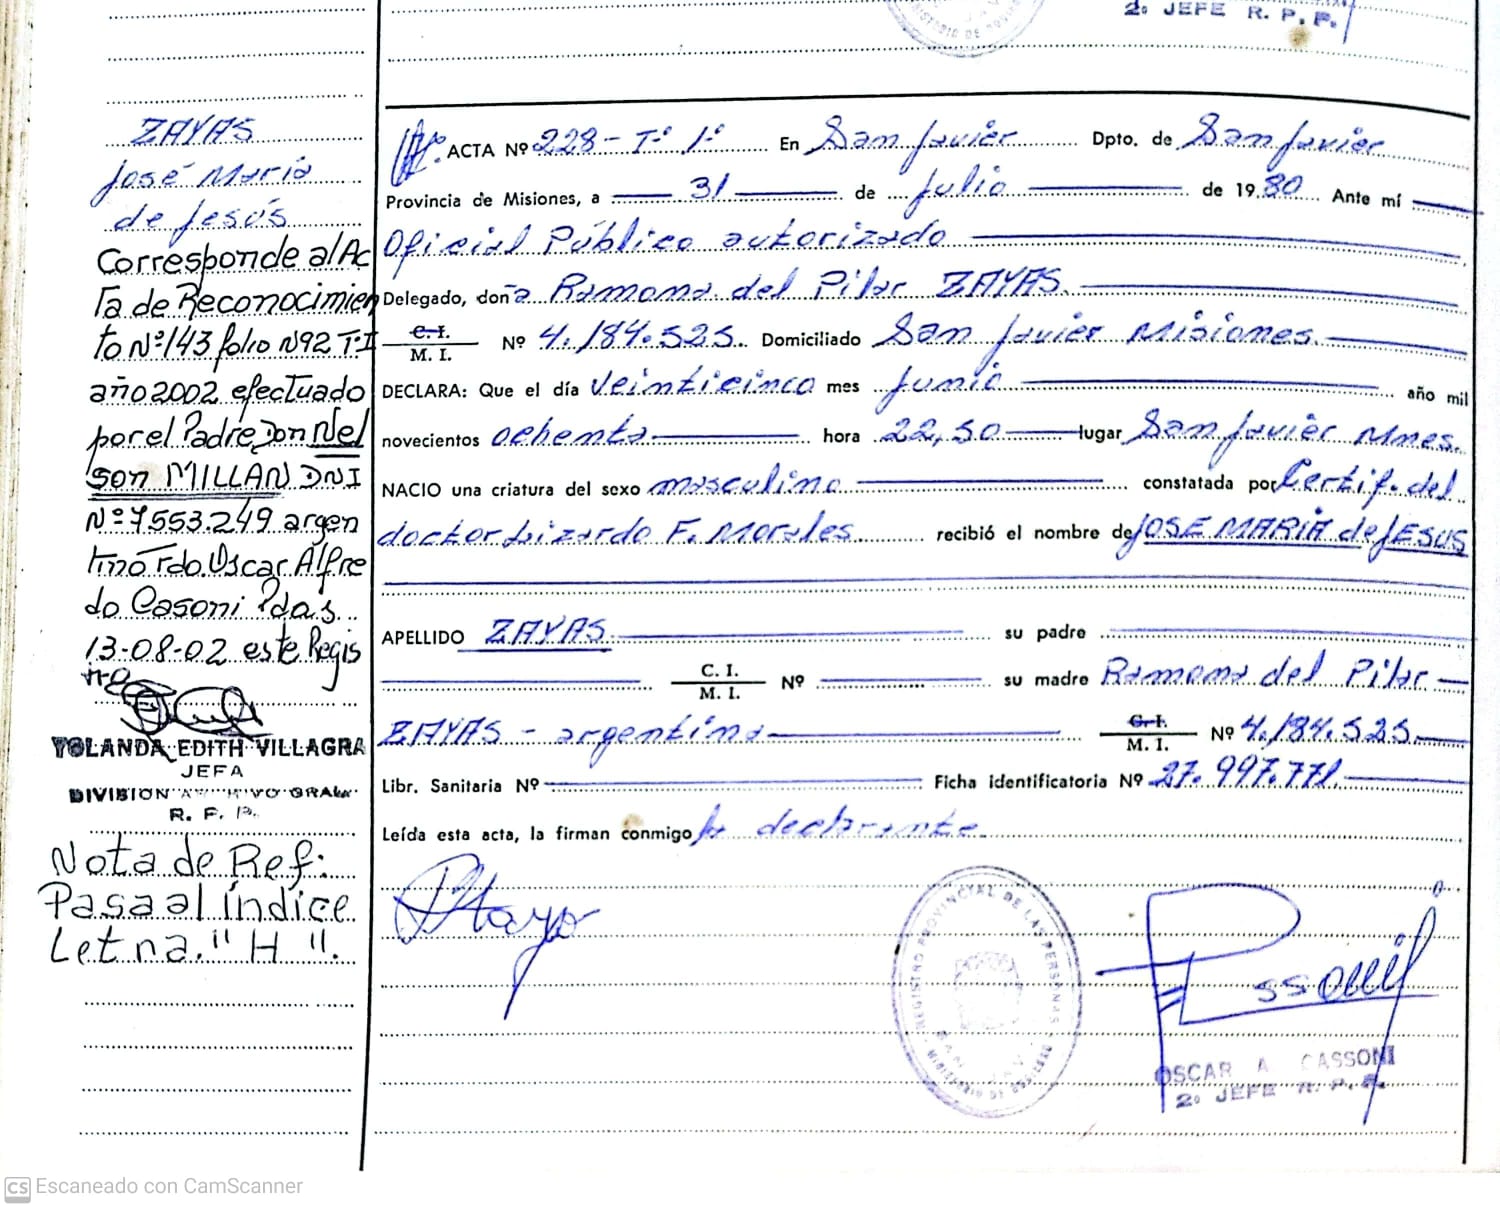 2º JEFE R. P. P.
ZAYAS
José María
de Jesús
Corresponde al Ac
ta de Reconocimien
to Nº 143 folio Nº 92 T: I
año 2002 efectuado
por el Padre Don Nel
son MILLAN DNI
Nº 7.553.249 argen
tino Fdo. Oscar Alfre
do Casoni Pdas.
13-08-02 este Regis
tro
YOLANDA EDITH VILLAGRA
JEFA
DIVISION ARCHIVO GRAL.
R. P. P.
Nota de Ref:
Pasa al índice
Letra "H".
ACTA Nº 228 - Tº 1º En San Javier Dpto. de San Javier
Provincia de Misiones, a 31 de Julio de 1980 Ante mí
Oficial Público autorizado
Delegado, doña Ramona del Pilar ZAYAS
C. I.
M. I. Nº 4.184.525. Domiciliado San Javier Misiones.
DECLARA: Que el día Veinticinco mes Junio año mil
novecientos ochenta hora 22,50 lugar San Javier Mnes.
NACIO una criatura del sexo masculino constatada por Certif. del
doctor Lizardo F. Morales. recibió el nombre de JOSE MARIA de JESUS
APELLIDO ZAYAS su padre
C. I.
M. I. Nº su madre Ramona del Pilar
ZAYAS - argentina C. I.
M. I. Nº 4.184.525.
Libr. Sanitaria Nº Ficha identificatoria Nº 27.997.771.
Leída esta acta, la firman conmigo la declarante.
REGISTRO PROVINCIAL DE LAS PERSONAS
OSCAR A. CASSONI
2º JEFE R. P. P.
CS Escaneado con CamScanner